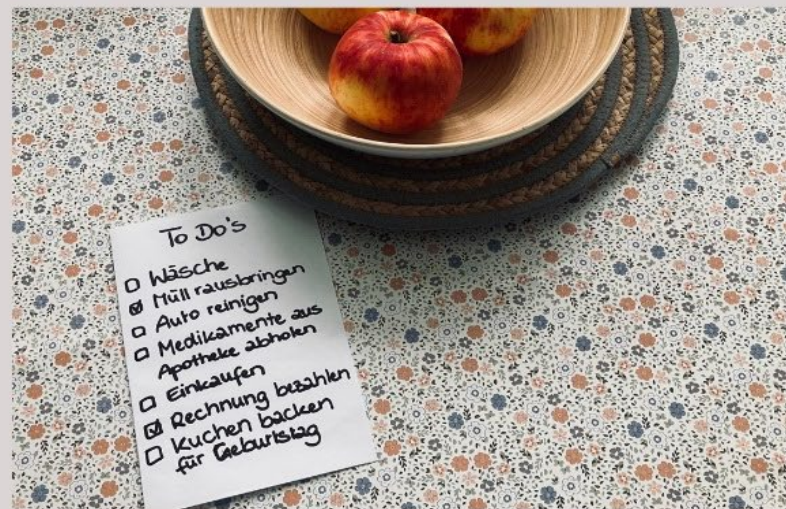 To Do's
☐ Wäsche
☑ Müll rausbringen
☐ Auto reinigen
☐ Medikamente aus
Apotheke abholen
☐ Einkaufen
☑ Rechnung bezahlen
☐ Kuchen backen
für Geburtstag